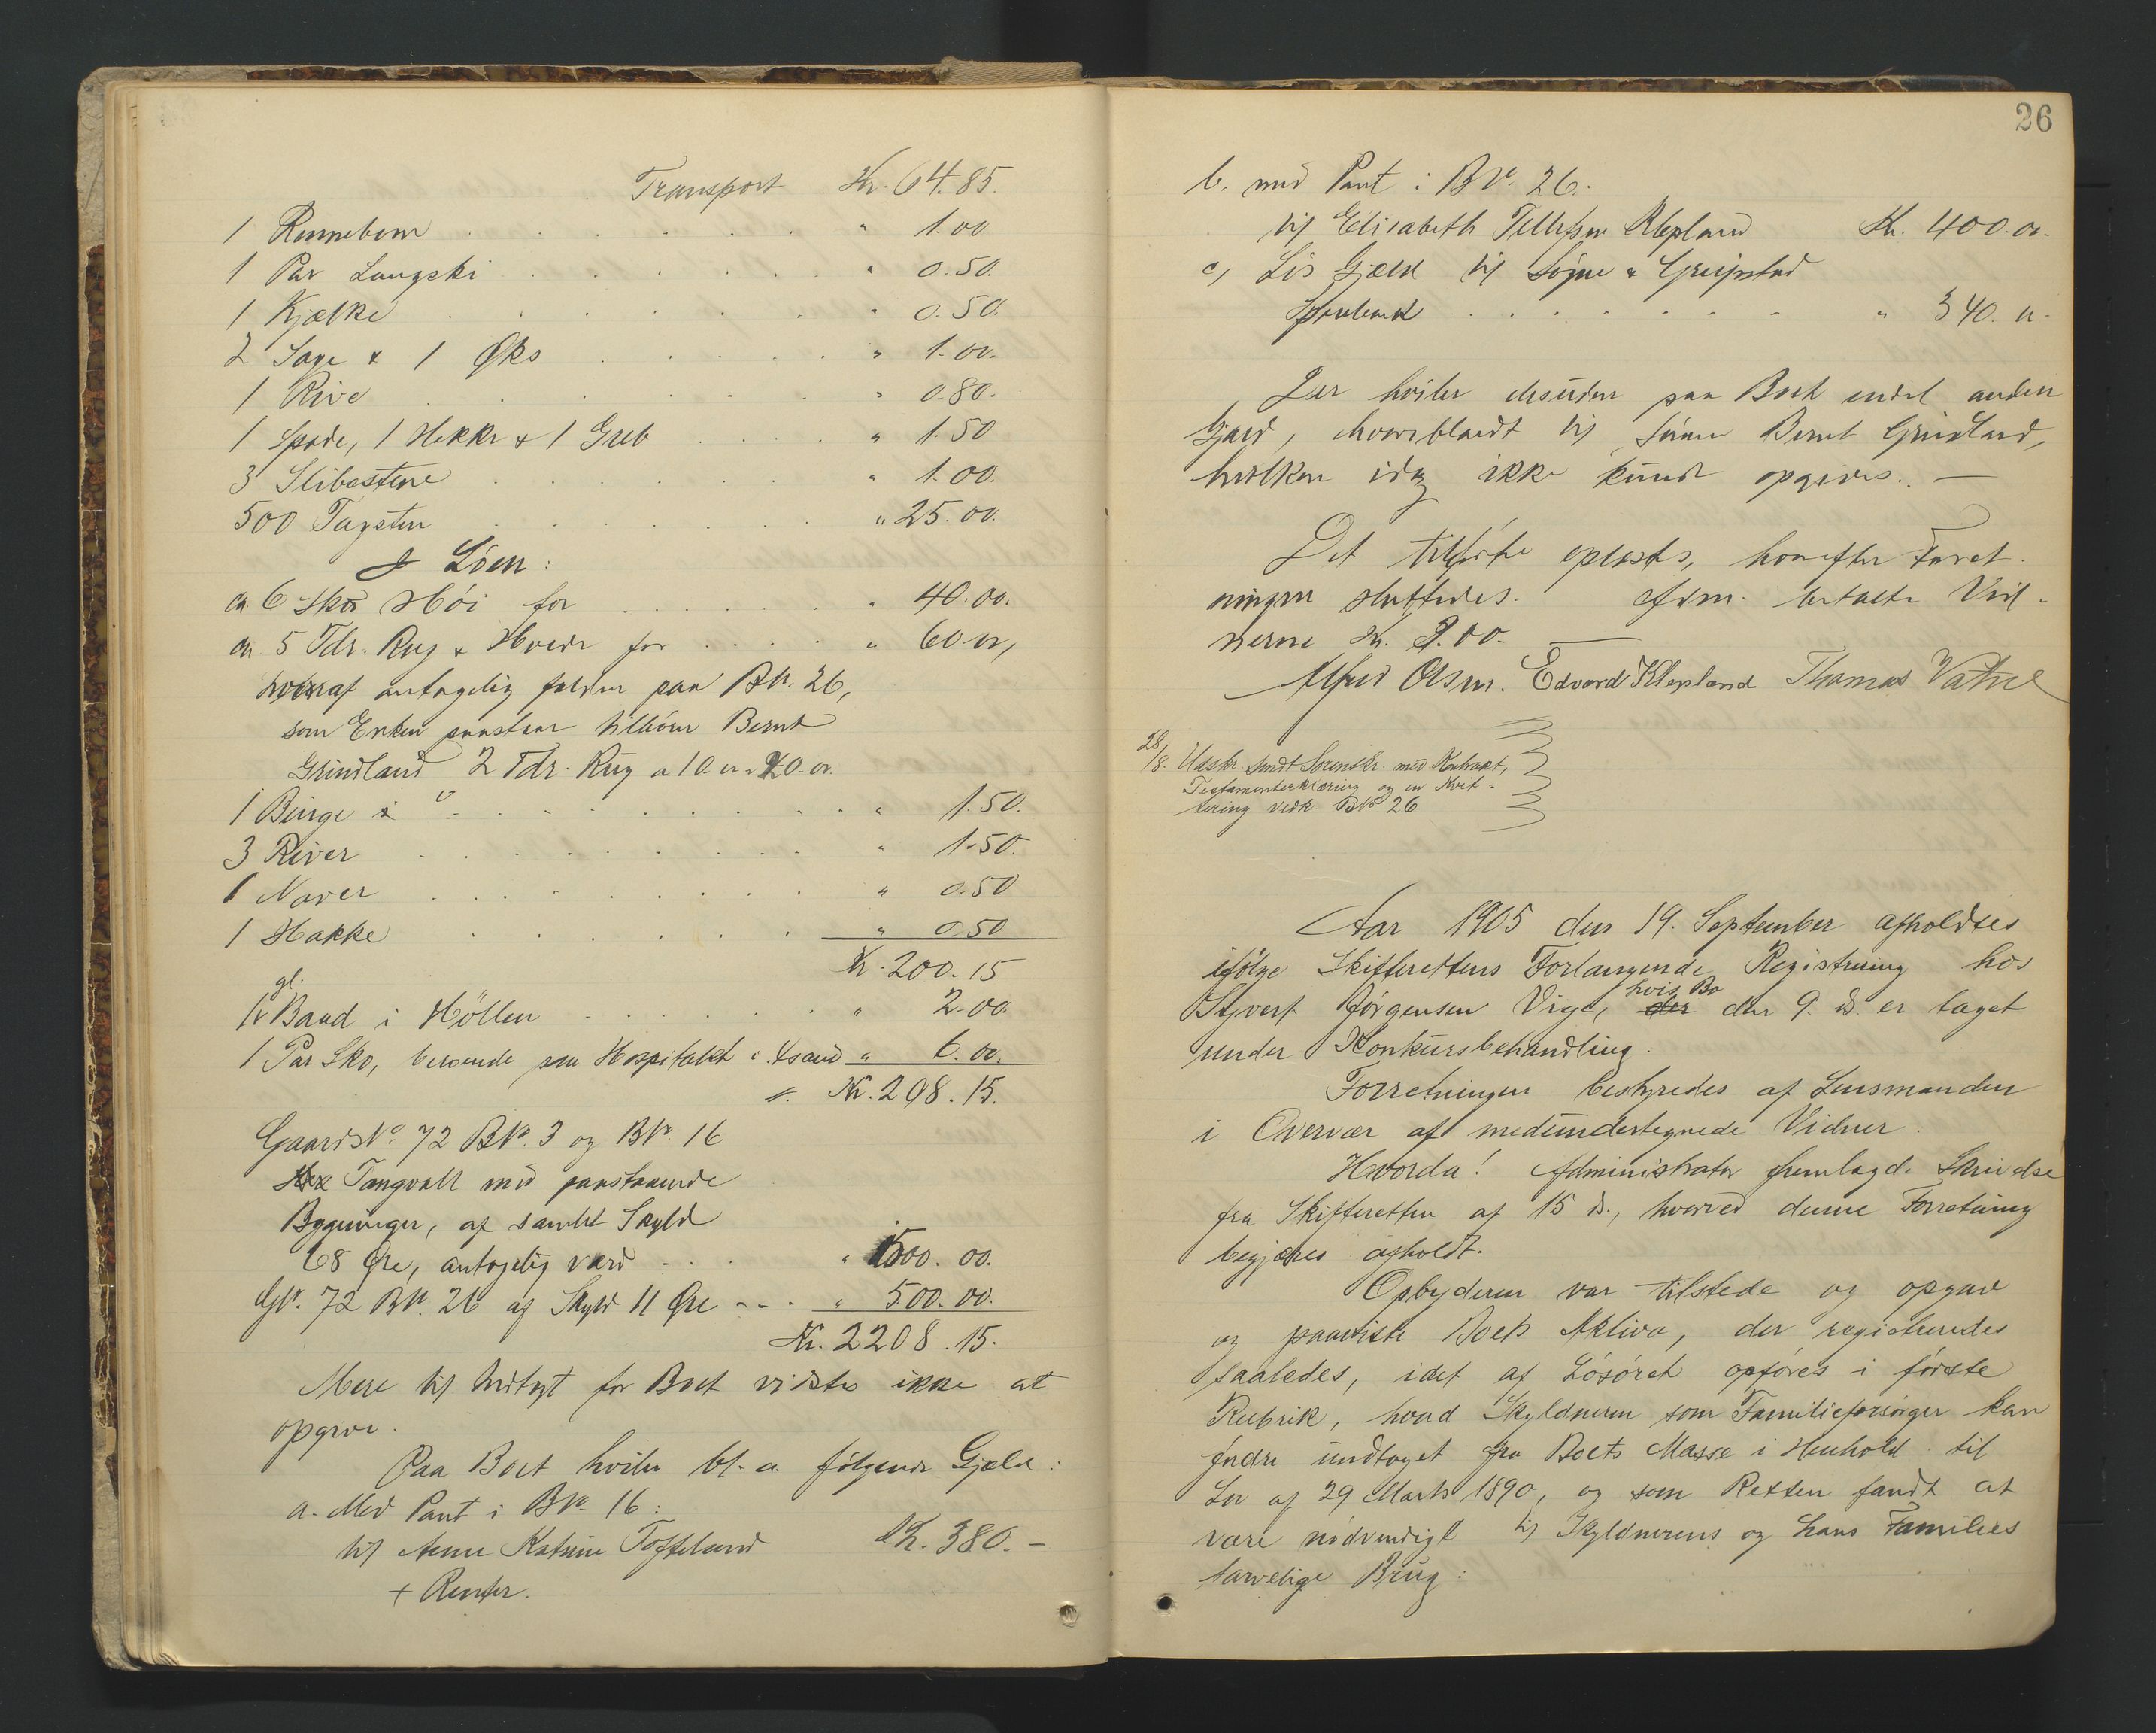 Transport Kr. 64.85.
1 Rennebom . . . . . . " 1.00
1 Par Langski . . . . . . " 0.50.
1 Kjælke . . . . . . " 0.50.
2 Sage & 1 Øks . . . . . " 1.00.
1 Rive . . . . . . " 0.80.
1 Spade, 1 Hakke & 1 Greb . . . . " 1.50
3 Slibestene . . . . . " 1.00.
500 Tagsten . . . . . . " 25.00.
I Løen:
ca. 6 Høi for . . . . . . " 40.00.
ca. 5 Tdr. Rug & Havre for . . . . " 60.00,
hvoraf antagelig falder paa BN. 26,
som Enken paastaar tilhører Bernt
Grindland 2 Tdr. Rug a 10.00 = 20.00.
1 Binge . . . . . . " 1.50.
3 River . . . . . . " 1.50.
1 Naver . . . . . . " 0.50
1 Hakke . . . . . . " 0.50
Kr. 200.15
gl.
Baad i Höllen . . . . . . " 2.00.
1 Par Sko, beroende paa Hospitalet i Xsand " 6.00.
Kr. 208.15.
Gaards No. 72 BNo. 3 og BNo. 16
Tangvall med paastaaende
Bygninger, af samlet Skyld
68 Øre, antagelig værd . . . " 1500.00.
GN. 72 BN. 26 af Skyld 11 Øre . . . " 500.00.
Kr. 2208.15.
Mere til Indtægt for Boet vidstes ikke at
opgive.
Paa Boet hviler bl.a. følgende Gjæld:
a. Med Pant i BNo. 16:
til Anne Katrine Toftelund Kr. 380.-
+ Renter.
26
b. med Pant i BNo. 26.
til Elisabeth Tellefsen Klepland Kr. 400.00.
c, Løs Gjæld til Søgne & Greipstad
Sparebank . . . . . . " 340.00.
Der hviler desuden paa Boet endel anden
Gjæld, hvoriblandt til Sønnen Bernt Grindland,
hvilken idag ikke kunde opgives. —
Det tilførte oplæstes, hvorefter Forret-
ningen sluttedes. Adm. betalte Vid-
nerne Kr. 2.00. —
Alfred Olsen. Edvard Klepland Thomas Vatne
28/8. Udskr. sendt Sorenskr. med Kontrakt,
Testamenterklæring og en Kvit-
tering vedk. BNo 26
Aar 1905 den 19. September afholdtes
ifølge Skifterettens Forlangende Registrering hos
hvis Bo
Syvert Jörgensen Vige, der den 9. ds. er taget
under Konkursbehandling.
Forretningen bestyredes af Lensmanden
i Overvær af medundertegnede Vidner.
Hvorda! Administrator fremlagde Skrivelse
fra Skifteretten af 15 ds., hvorved denne Forretning
begjæres afholdt.
Opbyderen var tilstede og opgav
og paaviste Boets Aktiva, der registreredes
saaledes, idet af Løsøret opføres i første
Rubrik, hvad Skyldneren som Familieforsørger kan
fordre undtaget fra Boets Masse i Henhold til
Lov af 29 Marts 1890, og som Retten fandt at
være nødvendigt til Skyldnerens og hans Families
tarvelige Brug: